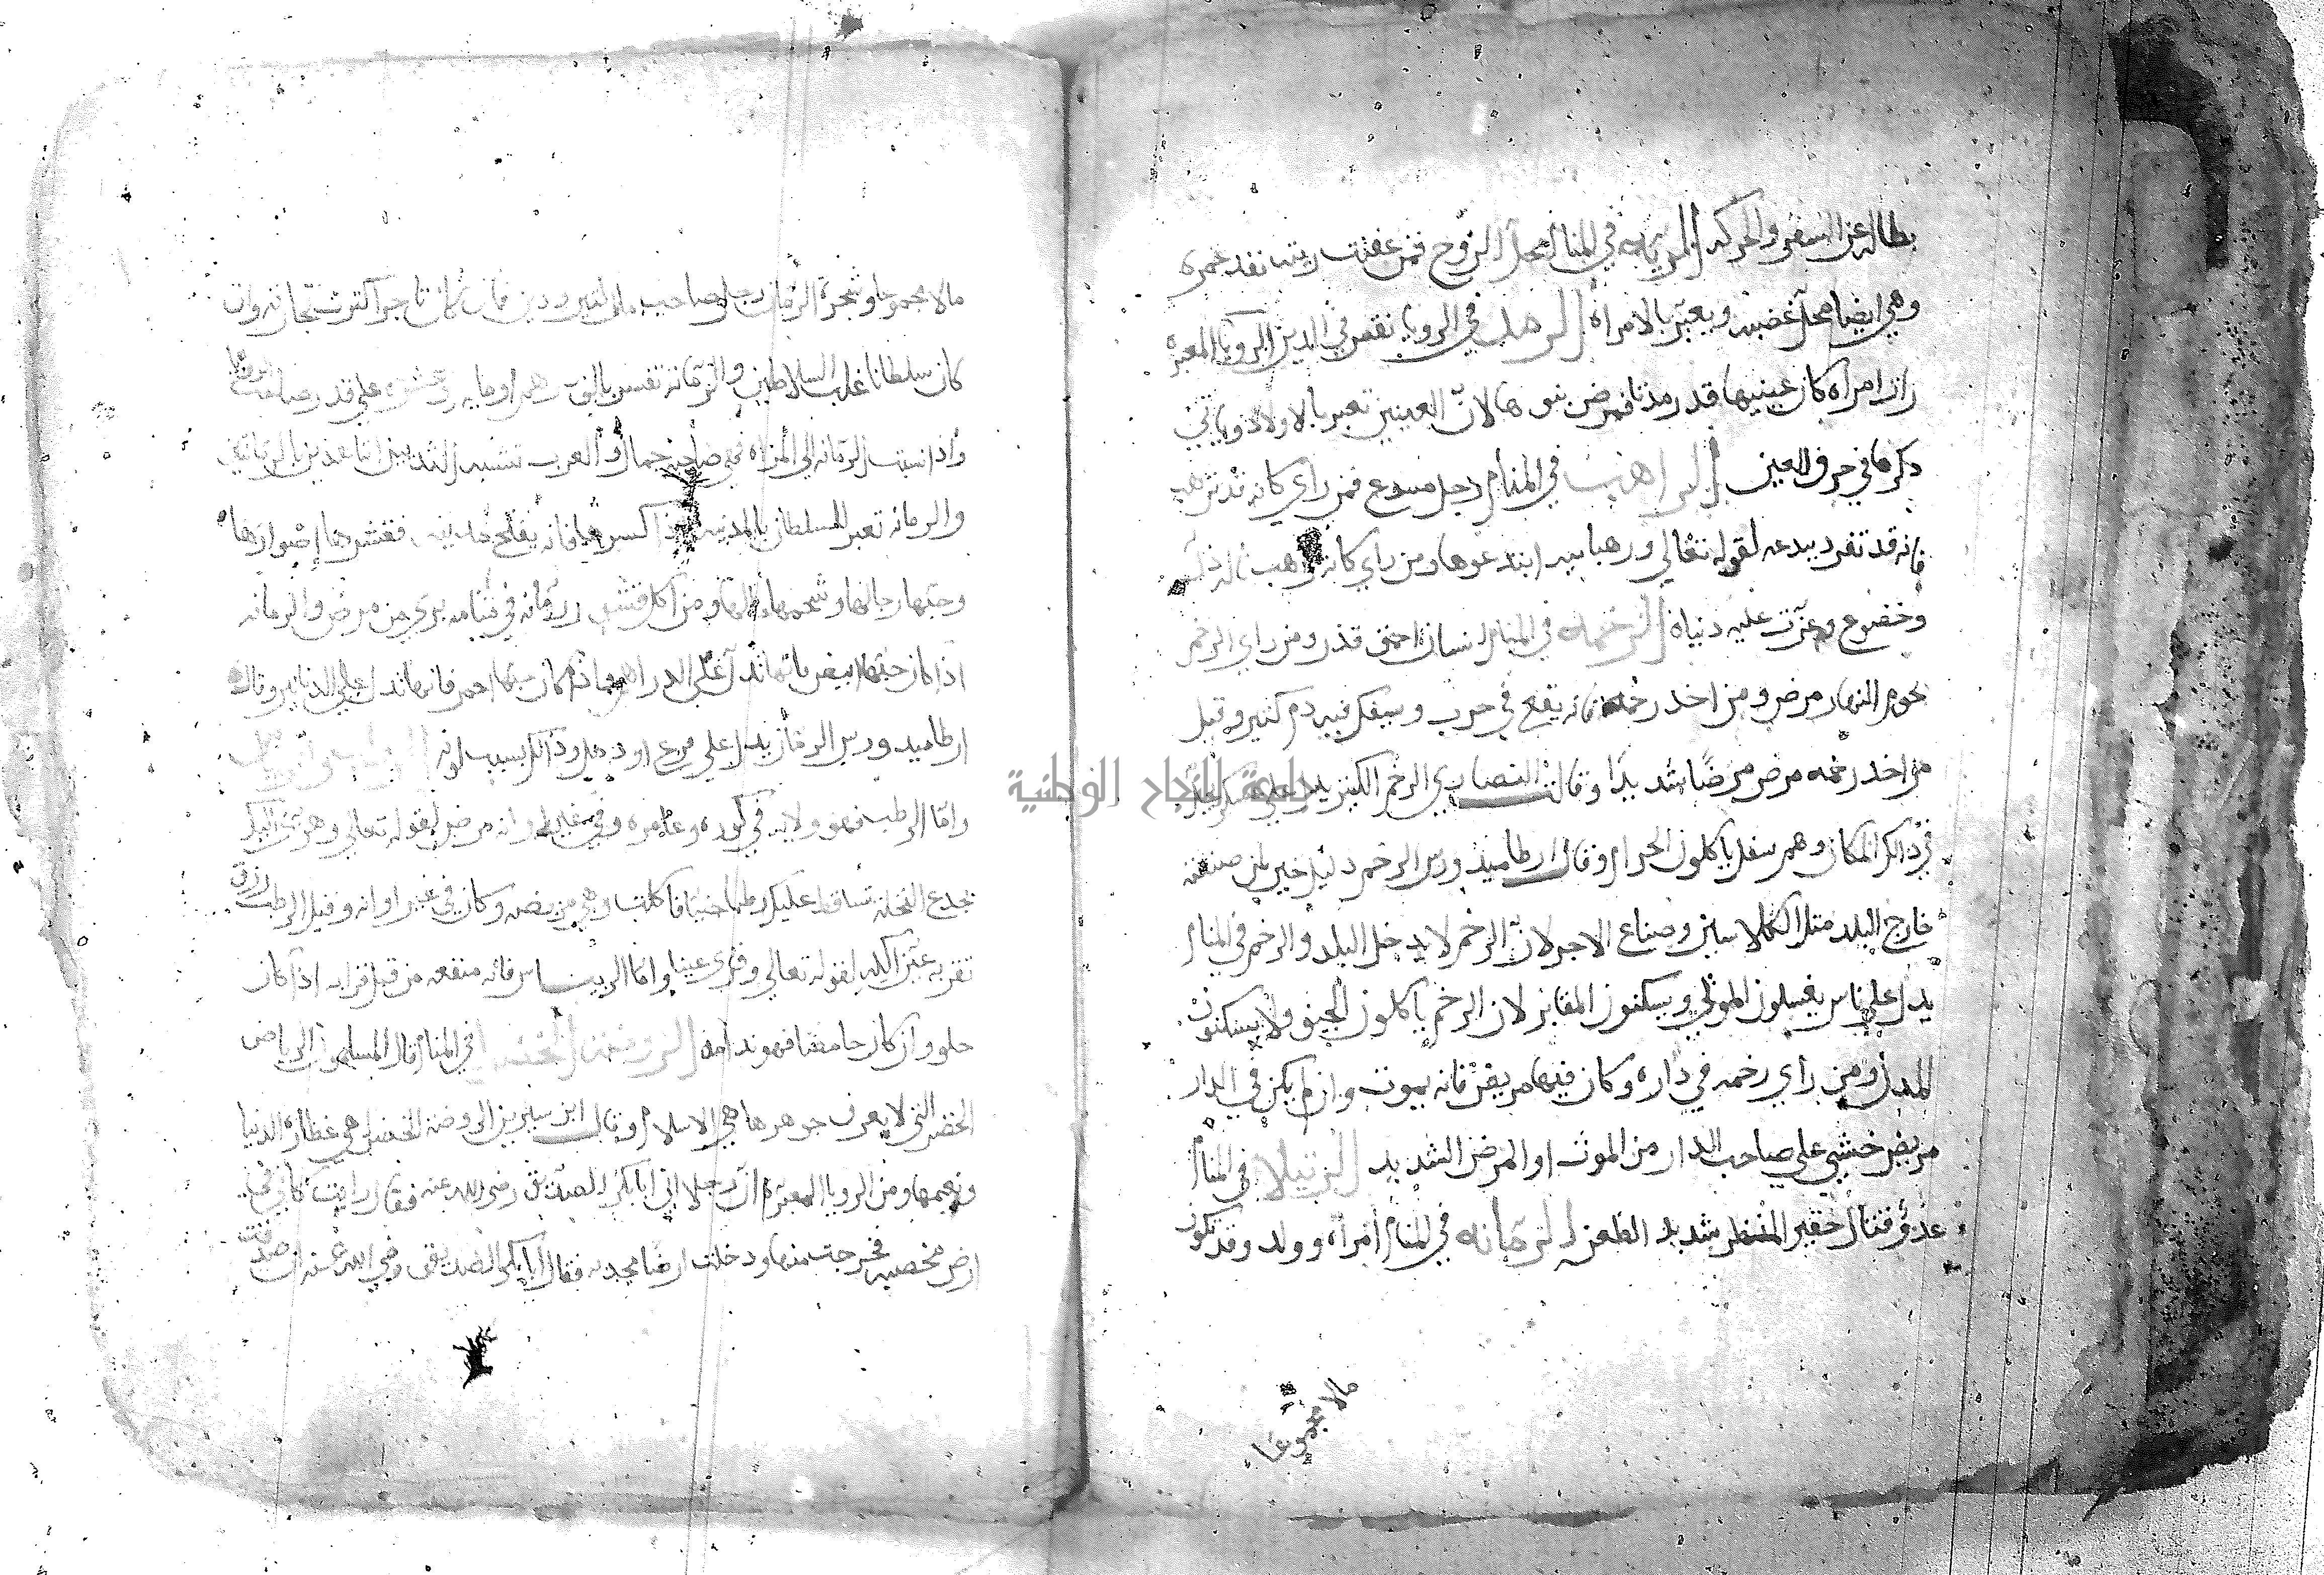 بطاله عن السفر والحركه الريه في المنام محل الروح فمن عفنت ريته نفد عمره
وهي ايضا محل غضبه ويعبر بالامراه الرهل في الرويا نقص في الدين الرويا المعبره
راٮ امراه كان عينيها قد رمدتا فمرض بنوها لان العينين تعبر بالاولاد وياتي
دكرها في حرف العين الراهب في المنام رجل مبتدع فمن راي كانه قد ترهب
فانه قد تفرد ببدعه لقوله تعالي ورهبانيه ابتدعوها ومن راي كانه راهب ناله ذل
وخضوع وعزت عليه دنياه الرخمه في المنام انسان احمق قذر ومن راي الرخم
نحوم النهار مرض ومن اخد رخمه فانه يقع في حرب وسفك فيه دم كتير وقيل
من اخد رخمه مرض مرضا شديدا وقالت النصاري الرخم الكتير يدل علي عسكر
في دالك المكان وهم سفل ياكلون الحرام وقال ارطاميدورس الرخم دليل خير لمن صنعته
خارج البلد متل الكلاسين وصناع الاجر لان الرخم لا يدخل البلد والرخم في المنام
يدل علي ناس يغسلون الموتي ويسكنون المقابر لان الرخم ياكلون الجيف ولا يسكنون
المدن ومن راي رخمه في داره وكان فيها مريض فانه يموت وان لم يكن في الدار
مريض خشي علي صاحب الدار من الموت او المرض الشديد الرتيلا في المنام
عدو قتال حقير المنظر شديد الطعن الرمانه في المنام امراه وولد وقد تكون
مالا مجموعا
مالا مجموعا وشجرة الرمان رجل صاحب مال كتير ودين فان كان تاجر اكترت تجاراته وان
كان سلطانا غلب السلاطين والرمانه تفسر بالف درهم او مايه علي قدر صاحب الرويا
واذا نسبت الرمانه الي المراه فهي صاحبة جمال والعرب تشبه التديين اذا عدين بالرمانتين
والرمانه تعبر للسلطان بالمدينه فاذا كسرها فانه يفتح مدينه فقشرها اصوارها
وحبها رجالها وشحمها مالها ومن اكل قشور رمانه في منامه بري من مرض والرمانه
اذا كان حبها ابيض فانها تدل علي الدراهم واذا كان حبها احمر فانها تدل علي الدنانير وقال
ارطاميدورس الرمان يدل علي جرح او دمل ودالك بسبب لونه
واما الرطب فهو ولايه في كوره وعامره وفي غير اوانه مرض لقوله تعالي وهزي اليك
بجدع النخله تساقط عليك رطبا جنيا فاكلت وهي مريضه وكان في غير اوانه وقيل الرطب رزق
تقر به عين اكله لقوله تعالي وقري عينا واما الريباس فانه منفعه من قبل قرابه اذا كان
حلو وان كان حامضا فهو ندامه الروضه الخضرا في المنام قال المسلمون الرياض
الخضر التي لا يعرف جوهرها هي الاسلام وقال ابن سيرين الروضه الخضرا هي غضارة الدنيا
ونعيمها ومن الرويا المعبره ان رجلا اتي ابا بكر الصديق رضي الله عنه فقال رايت كاني في
ارض مخصبه فخرجت منها ودخلت ارضا مجدبه فقال ابا بكر الصديق رضي الله عنه ان صدقت
جامعة النجاح الوطنية